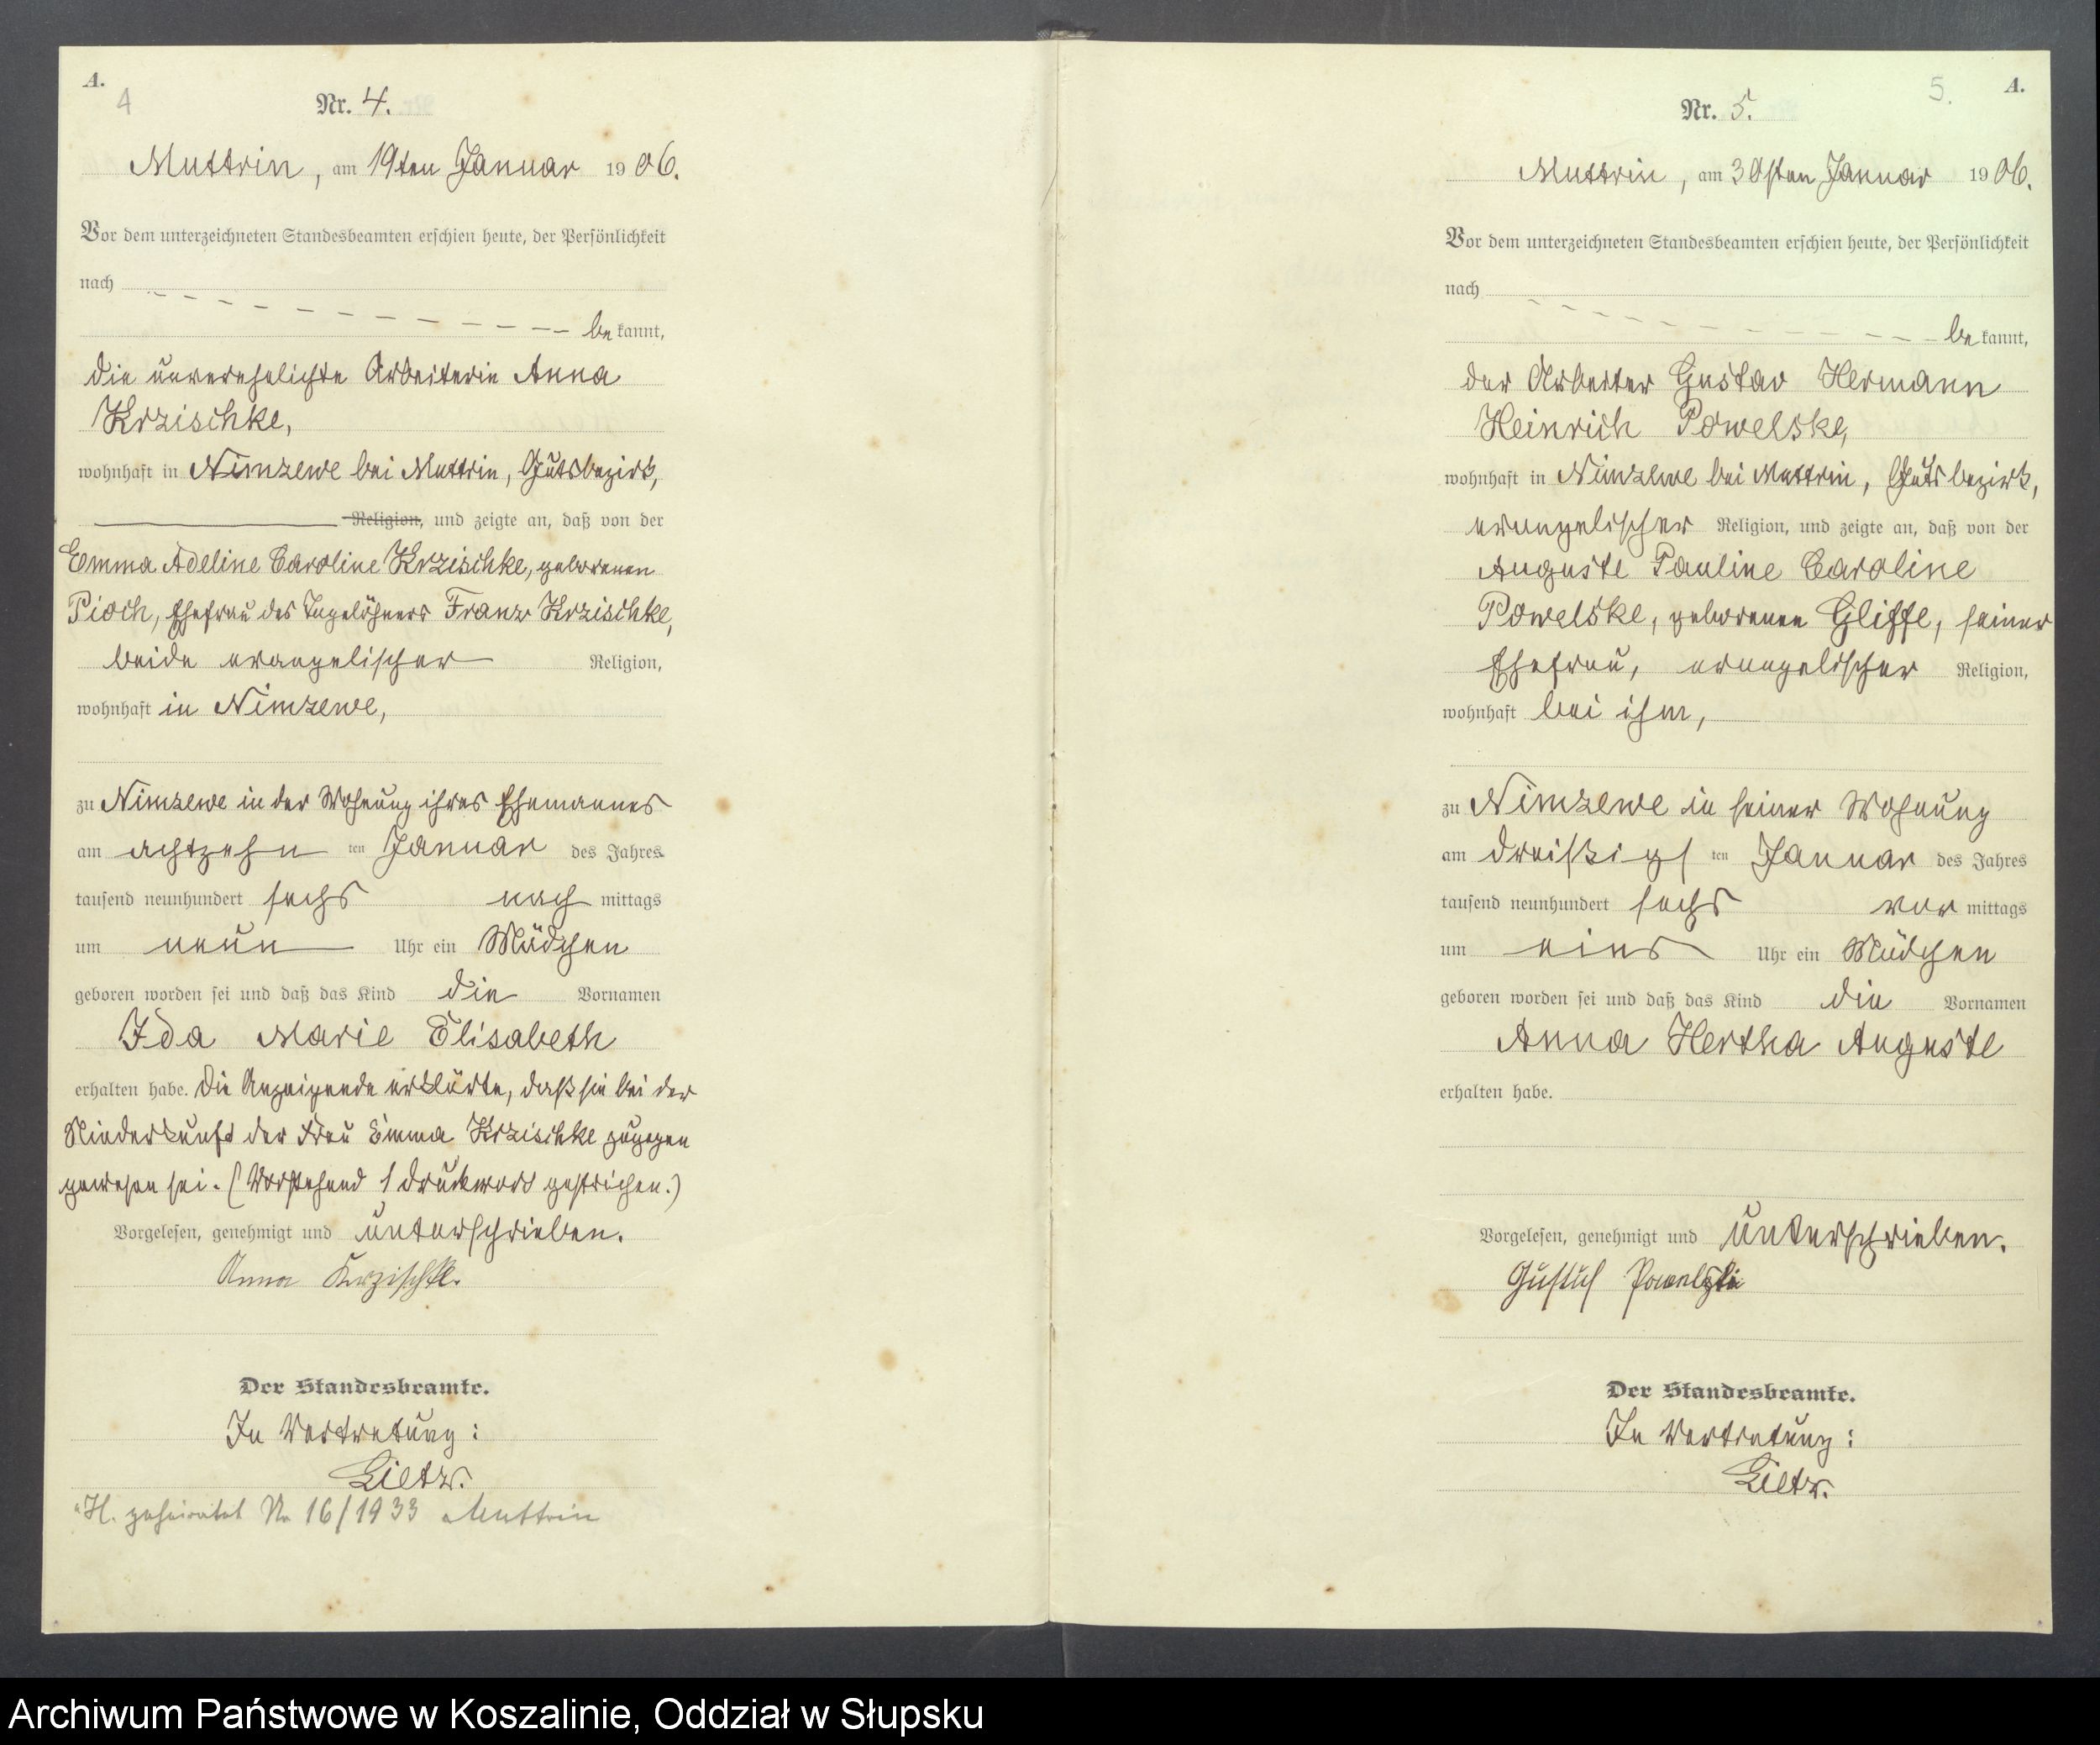 A.
4
Nr. 4.
Muttrin, am 19ten Januar 1906.
Vor dem unterzeichneten Standesbeamten erschien heute, der Persönlichkeit
nach
bekannt,
die unverehelichte Arbeiterin Anna
Krzischke,
wohnhaft in Nimzewe bei Muttrin, Gutsbezirk,
Religion, und zeigte an, daß von der
Emma Adeline Caroline Krzischke, geborenen
Pioch, Ehefrau des Tagelöhners Franz Krzischke,
beide evangelischer Religion,
wohnhaft in Nimzewe,
zu Nimzewe in der Wohnung ihres Ehemannes
am achtzehn ten Januar des Jahres
tausend neunhundert sechs nach mittags
um neun Uhr ein Mädchen
geboren worden sei und daß das Kind die Vornamen
Ida Marie Elisabeth
erhalten habe. Die Anzeigende erklärte, daß sie bei der
Niederkunft der Frau Emma Krzischke zugegen
gewesen sei. (Vorstehend 1 Druckwort gestrichen.)
Vorgelesen, genehmigt und unterschrieben.
Anna Krzischke.
Der Standesbeamte.
In Vertretung:
Lietz.
H. geheiratet Nr 16/1933 Muttrin
5. A.
Nr. 5.
Muttrin, am 30sten Januar 1906.
Vor dem unterzeichneten Standesbeamten erschien heute, der Persönlichkeit
nach
bekannt,
der Arbeiter Gustav Hermann
Heinrich Powelske,
wohnhaft in Nimzewe bei Muttrin, Gutsbezirk,
evangelischer Religion, und zeigte an, daß von der
Auguste Pauline Caroline
Powelske, geborenen Gliffe, seiner
Ehefrau, evangelischer Religion,
wohnhaft bei ihm,
zu Nimzewe in seiner Wohnung
am dreißigs ten Januar des Jahres
tausend neunhundert sechs vor mittags
um eins Uhr ein Mädchen
geboren worden sei und daß das Kind die Vornamen
Anna Hertha Auguste
erhalten habe.
Vorgelesen, genehmigt und unterschrieben.
Gustaf
Der Standesbeamte.
In Vertretung:
Lietz.
Archiwum Państwowe w Koszalinie, Oddział w Słupsku